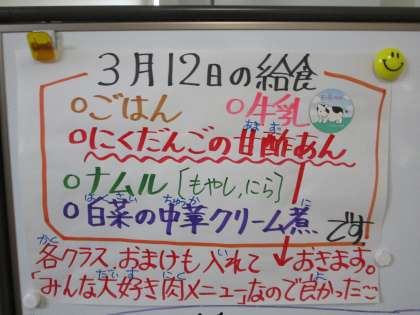 3月12日の給食
○ごはん ○牛乳
○にくだんごの甘酢あん
○ナムル[もやし,にら]
○白菜の中華クリーム煮です!
各クラス、おまけも入れておきます。
「みんな大好き肉メニュー」なので良かった…